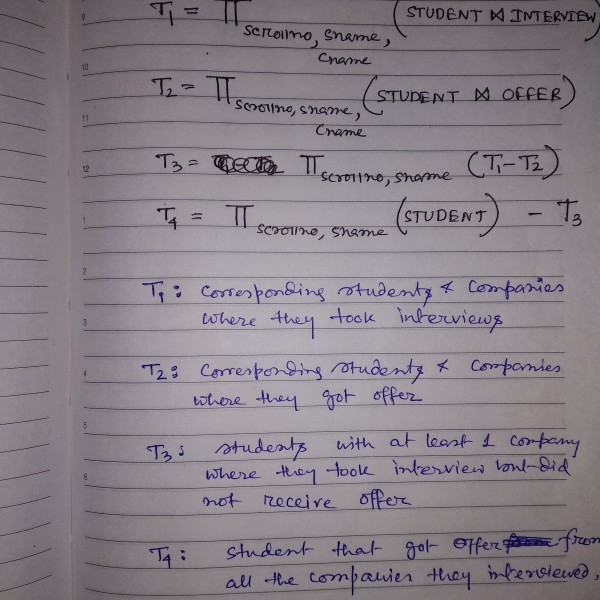 T₁ = Π scrollno, sname, cname (STUDENT ⋈ INTERVIEW)
T₂ = Π scrollno, sname, cname (STUDENT ⋈ OFFER)
T₃ = Π scrollno, sname (T₁ - T₂)
T₄ = Π scrollno, sname (STUDENT) - T₃
T₁ : corresponding students & companies
where they took interviews
T₂ : corresponding students & companies
where they got offer
T₃ : students with at least 1 company
where they took interview but did
not receive offer
T₄ : student that got offer from
all the companies they interviewed,